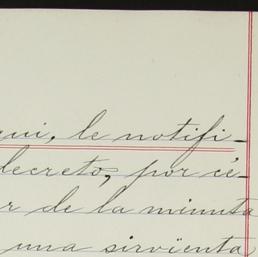 qui, le notifi-
decreto, por cé-
r de la minuta
una sirvienta